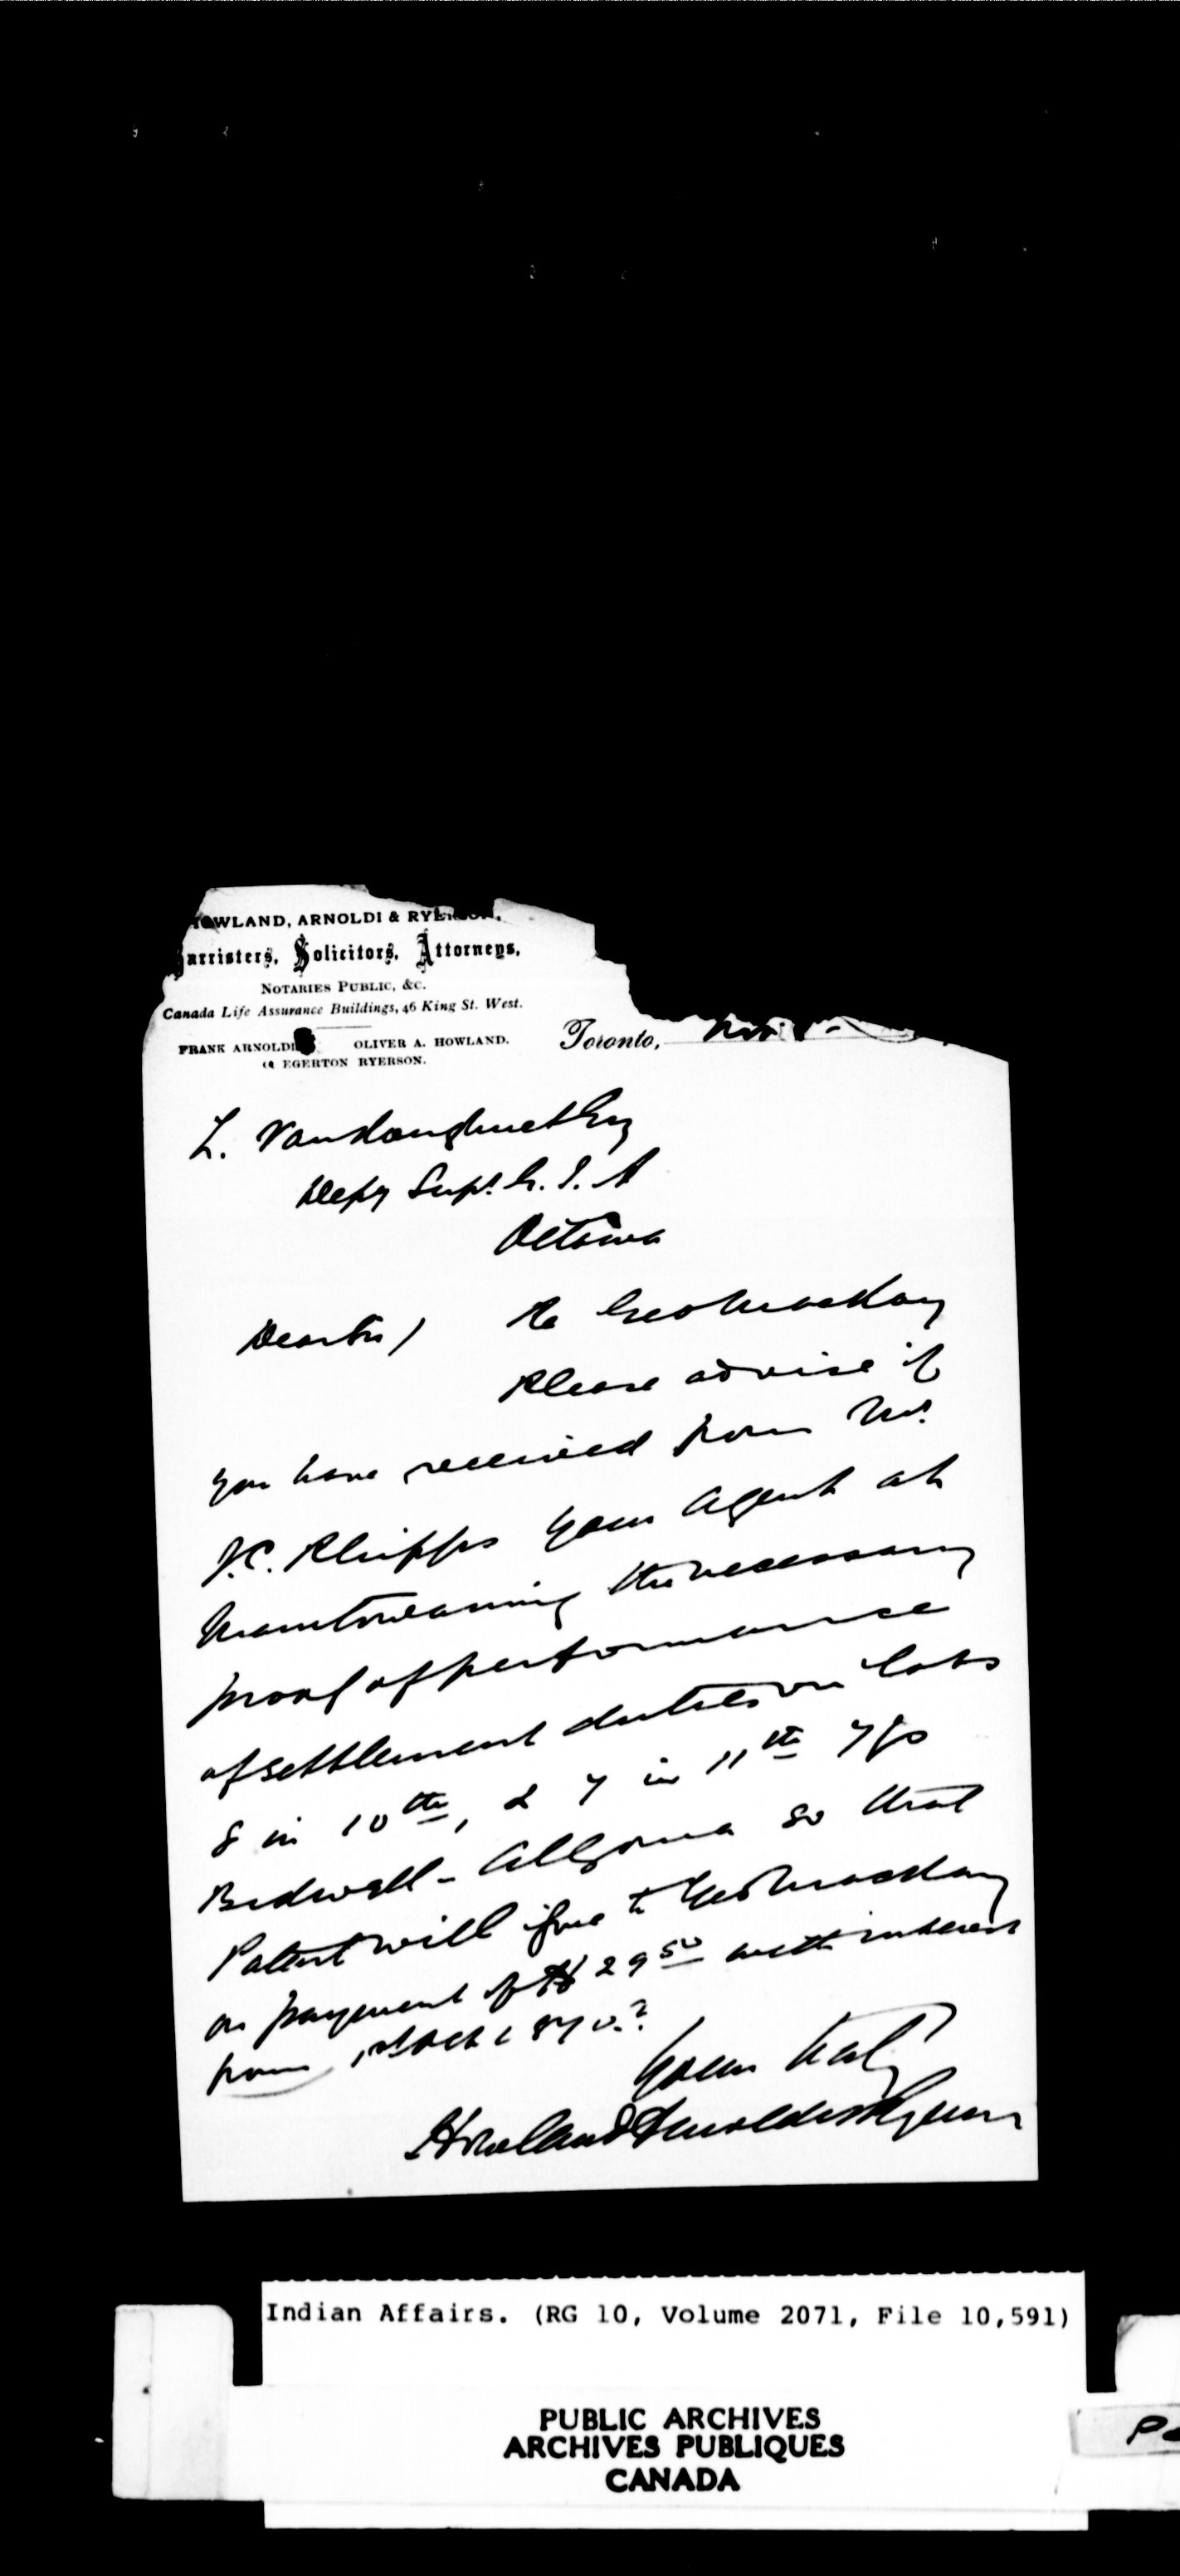 HOWLAND, ARNOLDI & RYERSON,
Barristers, Solicitors, Attorneys,
NOTARIES PUBLIC, &c.
Canada Life Assurance Buildings, 46 King St. West.
FRANK ARNOLDI OLIVER A. HOWLAND.
EGERTON RYERSON.
Toronto,
L. Vankoughnet Esq
Depy Supt. G. I. A
Ottawa
Dear Sir, Re Geo Mackay
Please advise if
you have received from Mr.
J.C. Phipps your Agent at
Manitowaning the necessary
proof of performance
of settlement duties on lots
8 in 10th, & 7 in 11th T/p
Bidwell - Algoma so that
Patent will issue to Geo Mackay
on payment of $ 29 50 with interest
from Oct 1870.?
Yours truly
Howland Arnoldi & Ryerson
Indian Affairs. (RG 10, Volume 2071, File 10,591)
PUBLIC ARCHIVES
ARCHIVES PUBLIQUES
CANADA